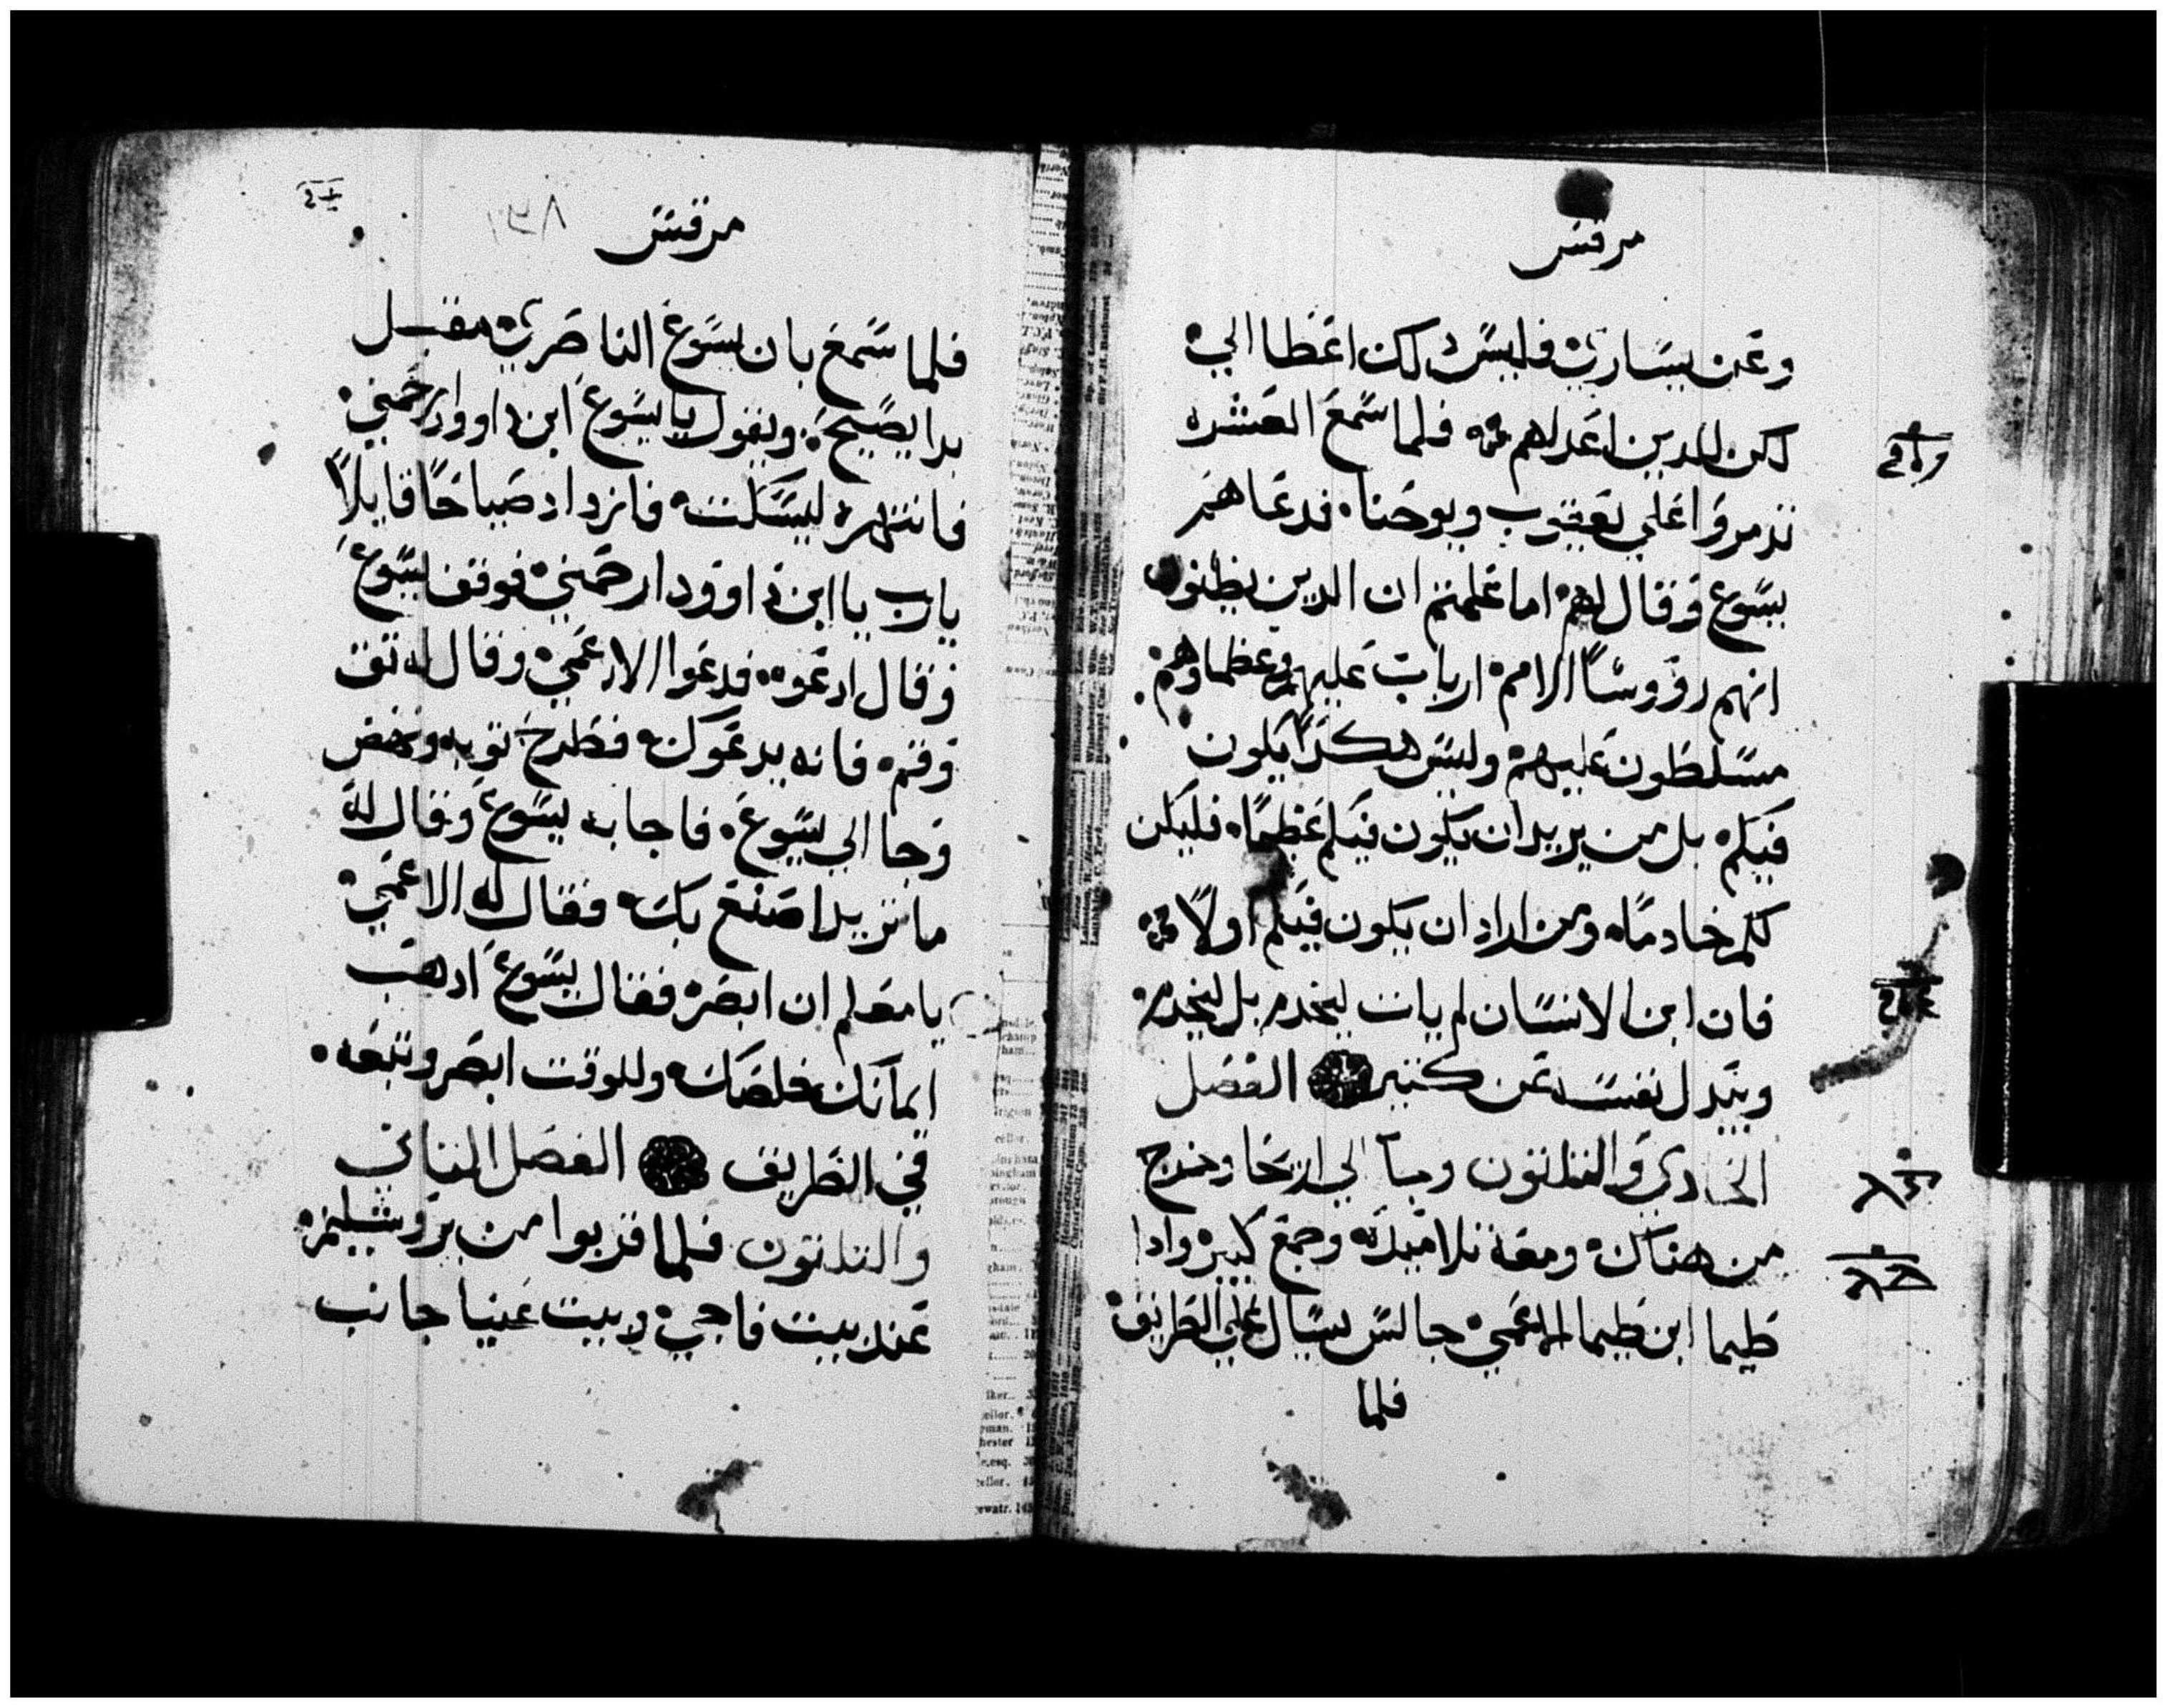 مرقس
وعن يساري فليس ذلك اعطا الي
لكن للدين اعد لهم فلما سمع العشره
تدمروا علي يعقوب ويوحنا فدعاهم
يسوع وقال لهم اما علمتم ان الدين يظنون
انهم رووسا الامم ارباب عليهم وعظماوهم
مسلطون عليهم وليس هكدا يكون
فيكم بل من يريد ان يكون فيكم عظيما فليكن
لكم خادما ومن اراد ان يكون فيكم اولا
فان ابن الانسان لم يات ليخدم بل ليخدم
ويبدل نفسه عن كتير الفصل
الحادي والتلاتون وجا الي اريحا وخرج
من هناك ومعه تلاميده وجمع كبير وادا
طيما ابن طيما الاعمي جالس يسال علي الطريق
فلما
مرقس
فلما سمع بان يسوع الناصري مقبل
بدا يصيح ويقول يا يسوع ابن داوود ارحمني
فانتهره ليسكت فازداد صياحا قايلا
يارب يا ابن داوود ارحمني فوقف يسوع
وقال ادعوه فدعوا الاعمي وقال له تق
وقم فانه يدعوك فطرح توبه ونهض
وجا الي يسوع فاجابه يسوع وقال له
ما تريد اصنع بك فقال له الاعمي
يا معلم ان ابصر فقال يسوع ادهب
ايمانك خلصك وللوقت ابصر وتبعه
في الطريق الفصل التاني
والتلاتون فلما قربوا من يروشليم
عند بيت فاجي وبيت عنيا جانب